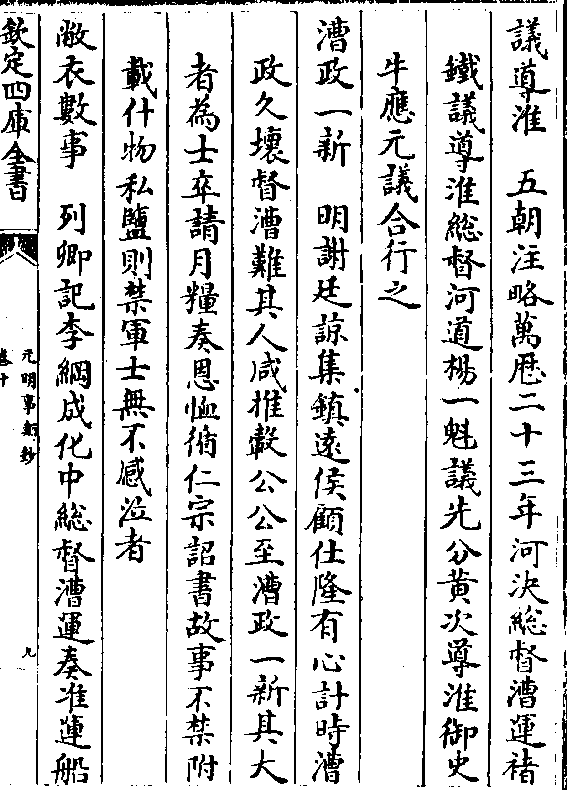 議導淮　五朝注略萬厯二十三年河決總督漕運褚
鐵議導淮總督河道楊一魁議先分黄次導淮御史
牛應元議合行之
漕政一新　明謝廷諒集鎮遠侯顧仕隆有心計時漕
政久壞督漕難其人咸推轂公公至漕政一新其大
者為士卒請月糧奏恩恤循仁宗詔書故事不禁附
載什物私鹽則禁軍士無不感泣者
敝衣數事　列卿記李綱成化中總督漕運奏准運船
欽定四庫全書
元明事類鈔
卷十
九